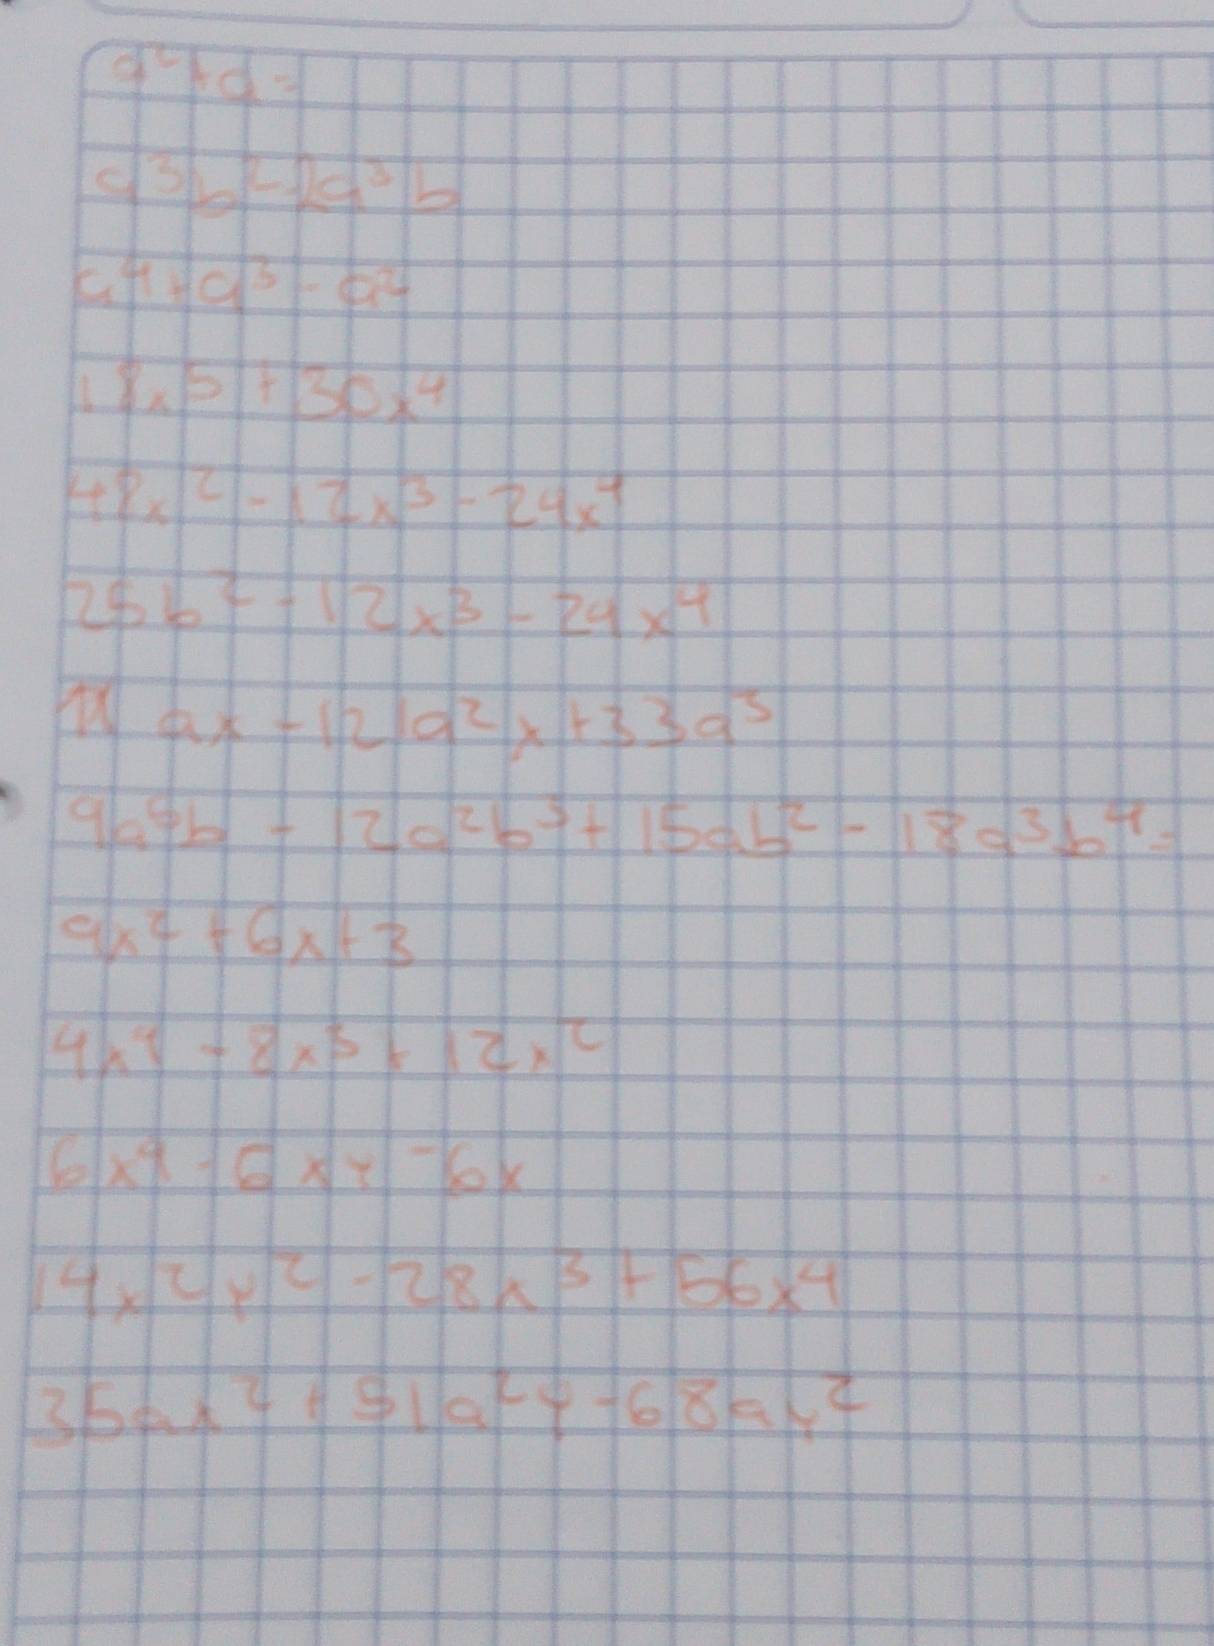 a²+a=
a³b²-2a³b
a⁴+a³-a²
18x⁵+30x⁴
48x²-12x³-24x⁴
25b²-12x³-24x⁴
11ax-121a²x+33a³
9a⁵b-12a²b³+15ab²-18a³b⁴=
9x²+6x+3
4x⁴-8x³+12x²
6x⁴-6xy-6x
14x²y²-28x³+56x⁴
35ax²+51a²y-68ay²